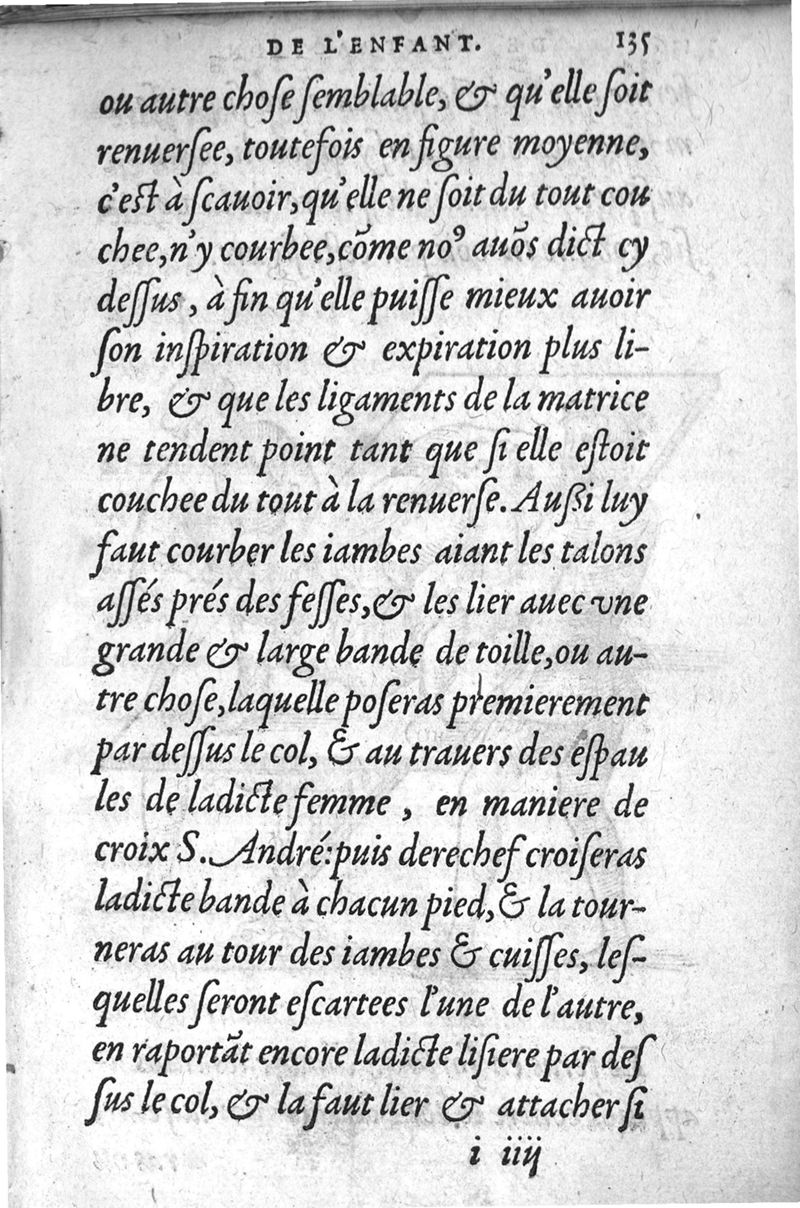 DE L'ENFANT. 135
ou autre choſe ſemblable, & qu'elle ſoit
renuerſee, toutefois en figure moyenne,
c'eſt à ſcauoir, qu'elle ne ſoit du tout cou
chee, n'y courbee, cõme noꝰ auõs dict cy
deſſus, à fin qu'elle puiſſe mieux auoir
ſon inſpiration & expiration plus li-
bre, & que les ligaments de la matrice
ne tendent point tant que ſi elle eſtoit
couchee du tout à la renuerſe. Auſsi luy
faut courber les iambes aiant les talons
aſſés prés des feſſes, & les lier auec vne
grande & large bande de toille, ou au-
tre choſe, laquelle poſeras premierement
par deſſus le col, & au trauers des eſpau
les de ladicte femme, en maniere de
croix S. André: puis derechef croiſeras
ladicte bande à chacun pied, & la tour-
neras au tour des iambes & cuiſſes, leſ-
quelles ſeront eſcartees l'une de l'autre,
en raportãt encore ladicte liſiere par deſ
ſus le col, & la faut lier & attacher ſi
i iiij